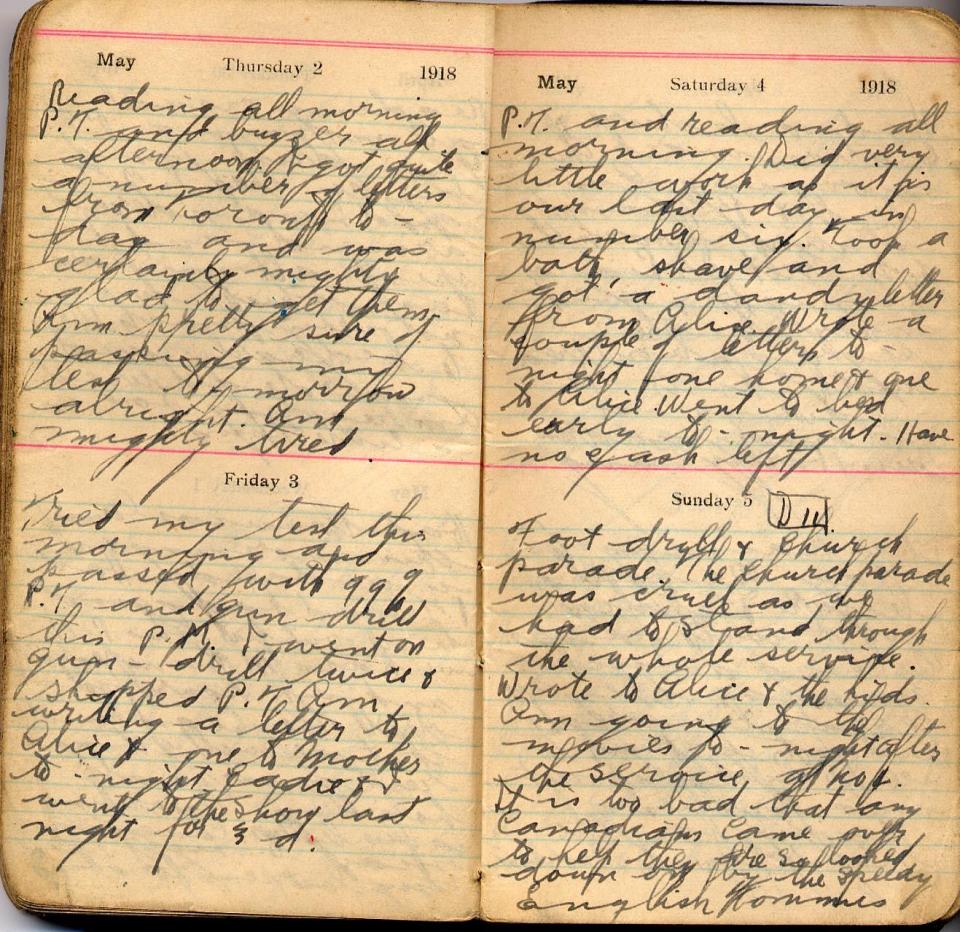 May Thursday 2 1918
Reading all morning
P.T. and buzzer all
afternoon. I got quite
a number of letters
from Toronto to-
day and was
certainly mighty
glad to get them,
Am pretty sure
passing my
test to-morrow
alright. Am
mighty tired.
Friday 3
Tried my test this
morning and
passed with 99.9
P.T. and gun drill
this P.M. I went on
gun-drill twice &
skipped P.T. Am
writing a letter to
Alice & one to Mother
to-night. & I
went to the show last
night for 3 d.
May Saturday 4 1918
P.T. and reading all
morning. Did very
little work as it is
our last day in
number six. Took a
bath, shave and
got a dandy letter
from Alice. Wrote a
couple of letters to-
night -one home & one
to Alice. Went to bed
early to-night. Have
no cash left
Sunday 5 D 11.
Foot drill & Church
parade. The Church parade
was cruel as we
had to stand through
the whole service.
Wrote to Alice & the kids.
Am going to the
movies to-night after
the service at hut.
It is too bad that any
Canadians came over
to help they are so looked
down on by the speedy
English Tommies